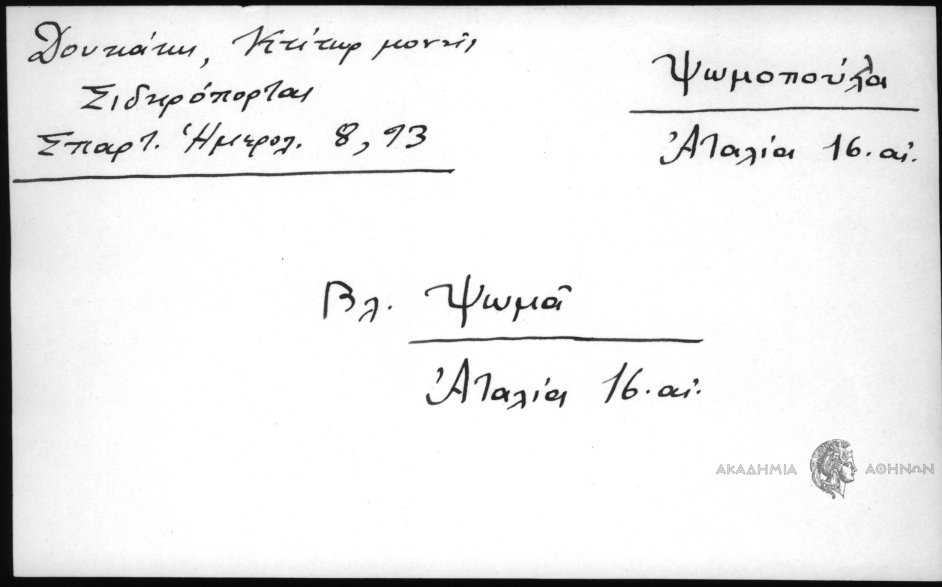 Δουκάκη, Κτίτωρ μονῆς
Σιδηρόπορτας
Σπαρτ. Ἡμερολ. 8, 93
Ψωμοπούλα
Ἀταλία 16. αἰ.
Βλ. Ψωμᾶ
Ἀταλία 16. αἰ.
ΑΚΑΔΗΜΙΑ ΑΘΗΝΩΝ